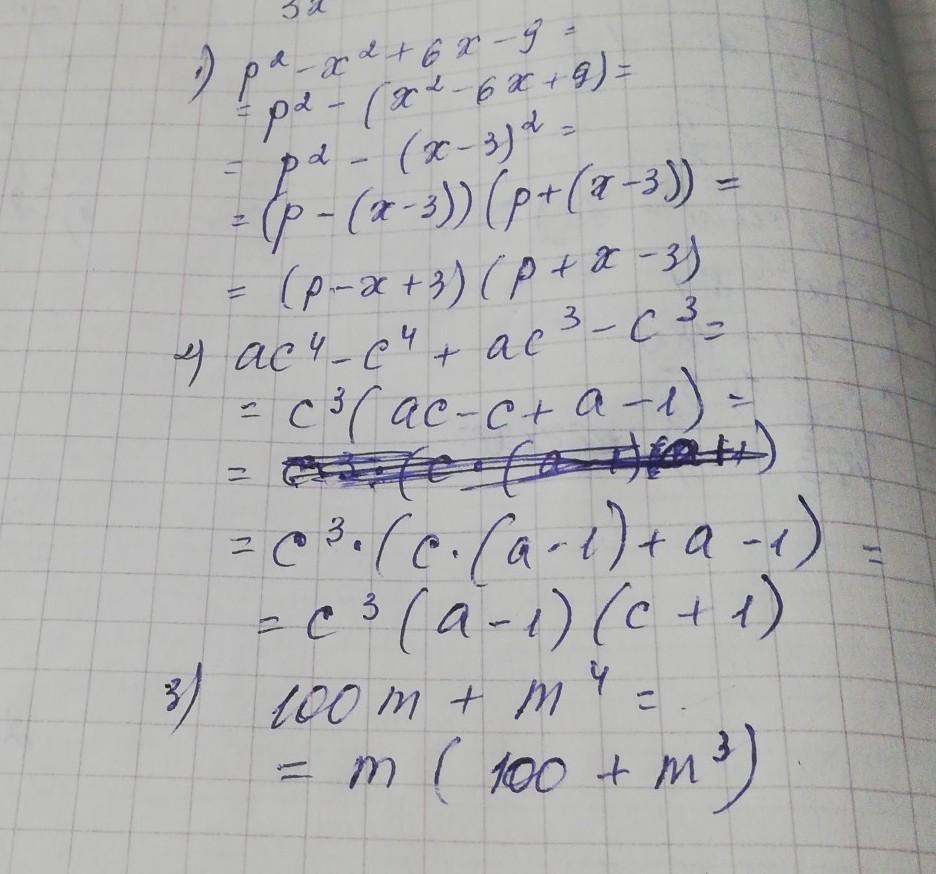 1) p² - x² + 6x - 9 =
= p² - (x² - 6x + 9) =
= p² - (x-3)² =
= (p - (x-3))(p + (x-3)) =
= (p - x + 3)(p + x - 3)
2) ac⁴ - c⁴ + ac³ - c³ =
= c³(ac - c + a - 1) =
=
= c³·(c·(a-1) + a - 1) =
= c³(a-1)(c + 1)
3) 100m + m⁴ =
= m(100 + m³)